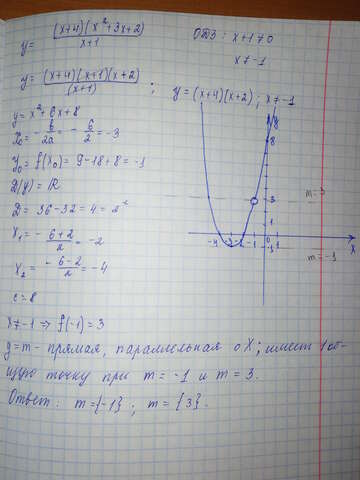 y = (x+4)(x²+3x+2) / x+1
ОДЗ: x+1≠0
x≠-1
y = (x+4)(x+1)(x+2) / (x+1) ; y = (x+4)(x+2); x≠-1
y = x²+6x+8
x₀ = -b/2a = -6/2 = -3
y₀ = f(x₀) = 9-18+8 = -1
D(y) = ℝ
D = 36-32 = 4 = 2²
x₁ = -6+2/2 = -2
x₂ = -6-2/2 = -4
c = 8
x≠-1 ⇒ f(-1) = 3
y = m - прямая, параллельная оX; имеет 1 об-
щую точку при m = -1 и m = 3.
Ответ: m={-1}; m={3}.
y
8
3
m=3
-4
-1
0
1
x
-1
m=-1